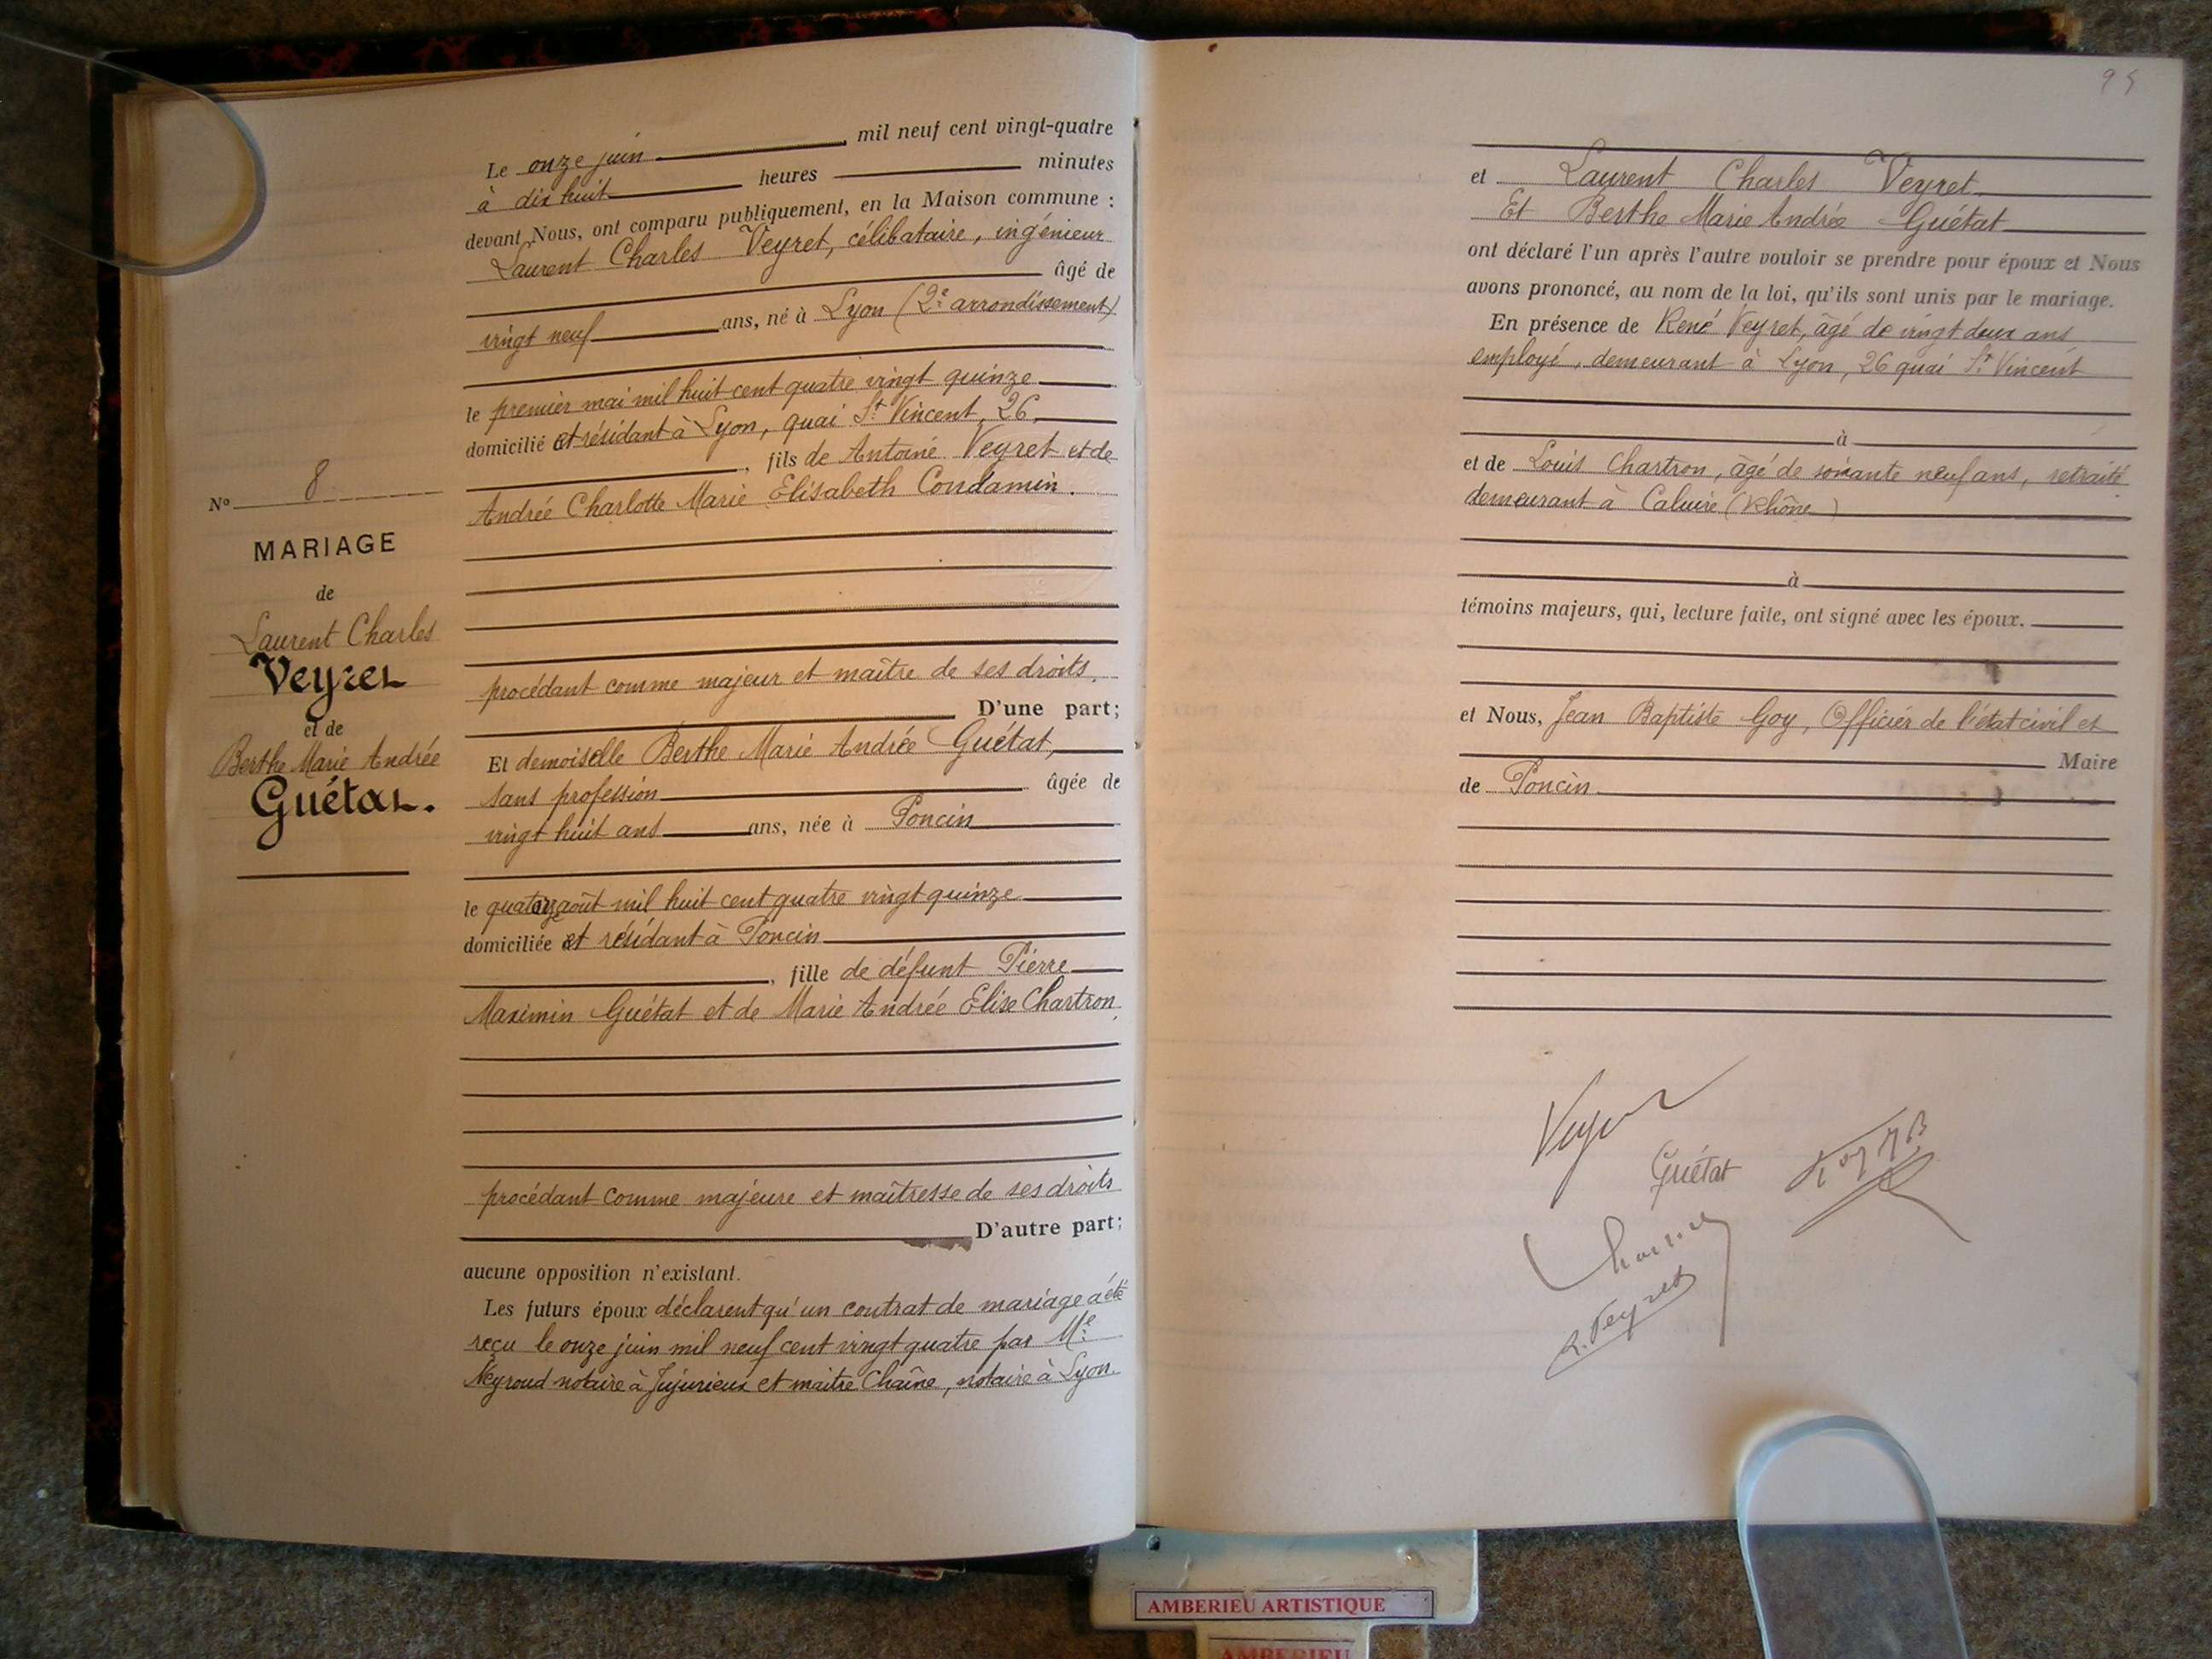 Le onze juin mil neuf cent vingt-quatre
à dix huit heures minutes
devant Nous, ont comparu publiquement, en la Maison commune :
Laurent Charles Veyret, célibataire, ingénieur
âgé de
vingt neuf ans, né à Lyon (2e arrondissement)
le premier mai mil huit cent quatre vingt quinze
domicilié et résidant à Lyon, quai St Vincent, 26,
, fils de Antoine Veyret et de
Andrée Charlotte Marie Elisabeth Condamin.
procédant comme majeur et maître de ses droits.
D'une part;
Et demoiselle Berthe Marie Andrée Guétat,
sans profession âgée de
vingt huit ans ans, née à Poncin
le quatorze août mil huit cent quatre vingt quinze
domiciliée et résidant à Poncin
, fille de défunt Pierre
Maximin Guétat et de Marie Andrée Elise Chartron
procédant comme majeure et maîtresse de ses droits
D'autre part;
aucune opposition n'existant.
Les futurs époux déclarent qu'un contrat de mariage a été
reçu le onze juin mil neuf cent vingt quatre par Me
Neyroud notaire à Jujurieux et maître Chaîne, notaire à Lyon.
No 8
MARIAGE
de
Laurent Charles
Veyret
et de
Berthe Marie Andrée
Guétat.
95
et Laurent Charles Veyret
Et Berthe Marie Andrée Guétat
ont déclaré l'un après l'autre vouloir se prendre pour époux et Nous
avons prononcé, au nom de la loi, qu'ils sont unis par le mariage.
En présence de René Veyret, âgé de vingt deux ans
employé, demeurant à Lyon, 26 quai St Vincent
à
et de Louis Chartron, âgé de soixante neuf ans, retraité
demeurant à Caluire (Rhône)
à
témoins majeurs, qui, lecture faite, ont signé avec les époux.
et Nous, Jean Baptiste Goy, Officier de l'état civil et
Maire
de Poncin
Guétat
R. Veyret
AMBERIEU ARTISTIQUE
AMBERIEU